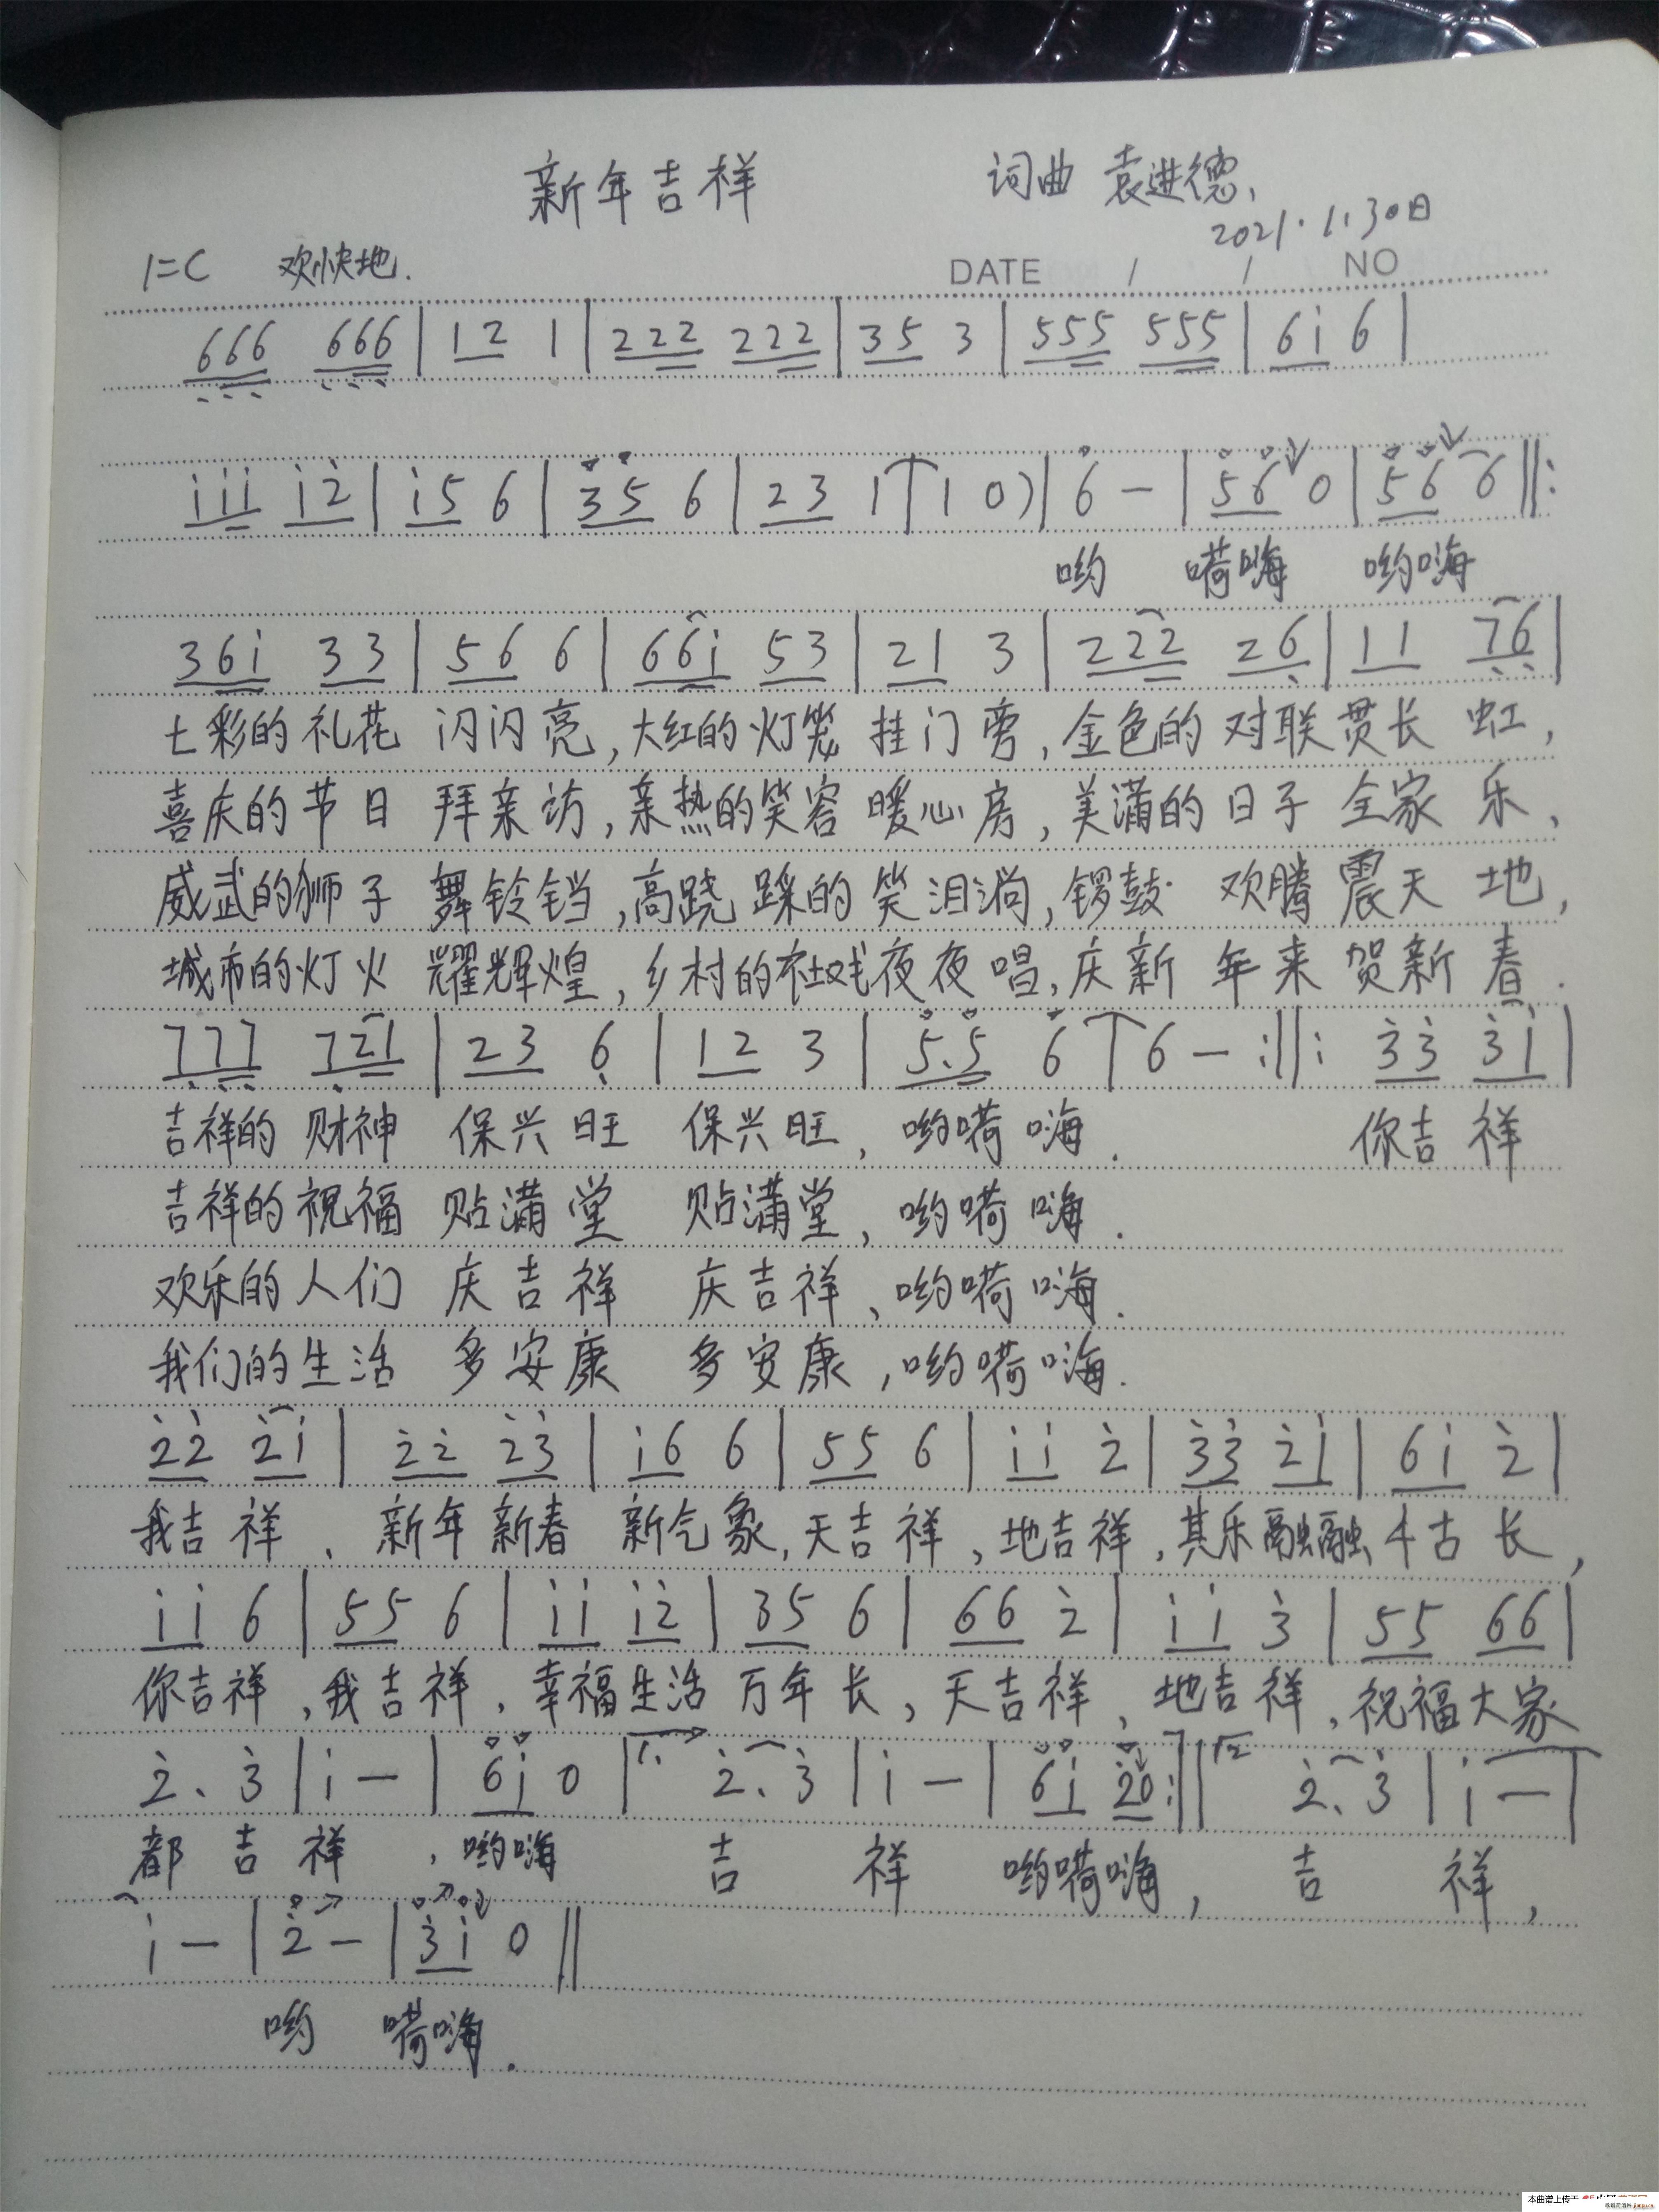 新年吉祥 词曲 袁进德、
2021.1.30日
1=C 欢快地. DATE / / NO
666 666 | 12 1 | 222 222 | 35 3 | 555 555 | 6i 6 |
iii i2 | i5 6 | 35 6 | 23 1 | 1 0) | 6 — | 56 0 | 56 6 ‖:
哟 嗬嗨 哟嗨
36i 33 | 56 6 | 66i 53 | 21 3 | 222 26 | 11 76 |
七彩的礼花 闪闪亮,大红的灯笼 挂门旁,金色的 对联贯长 虹,
喜庆的节日 拜亲访,亲热的笑容 暖心房,美满的日子 全家 乐,
威武的狮子 舞铃铛,高跷踩的笑泪淌,锣鼓 欢腾震天 地,
城市的灯火 耀辉煌,乡村的社戏夜夜唱,庆新 年来 贺新 春.
777 721 | 23 6 | 12 3 | 5.5 6 | 6 — :‖: 33 3i |
吉祥的 财神 保兴旺 保兴旺,哟嗬嗨. 你吉祥
吉祥的祝福 贴满堂 贴满堂,哟嗬嗨.
欢乐的人们 庆吉祥 庆吉祥、哟嗬嗨.
我们的生活 多安康 多安康,哟嗬嗨.
22 2i | 22 23 | i6 6 | 55 6 | ii 2 | 33 2i | 6i 2 |
我吉祥、新年新春 新气象,天吉祥,地吉祥,其乐融融千古长,
ii 6 | 55 6 | ii i2 | 35 6 | 66 2 | ii 3 | 55 66 |
你吉祥,我吉祥,幸福生活 万年长,天吉祥、地吉祥,祝福大家
2、3 | i — | 6i 0 | 1. 2、3 | i — | 6i 20 :‖ 2 2、3 | i — |
都吉祥,哟嗨 吉 祥 哟嗬嗨, 吉 祥,
i — | 2 — | 3i 0 ‖
哟 嗬嗨.
本曲谱上传于